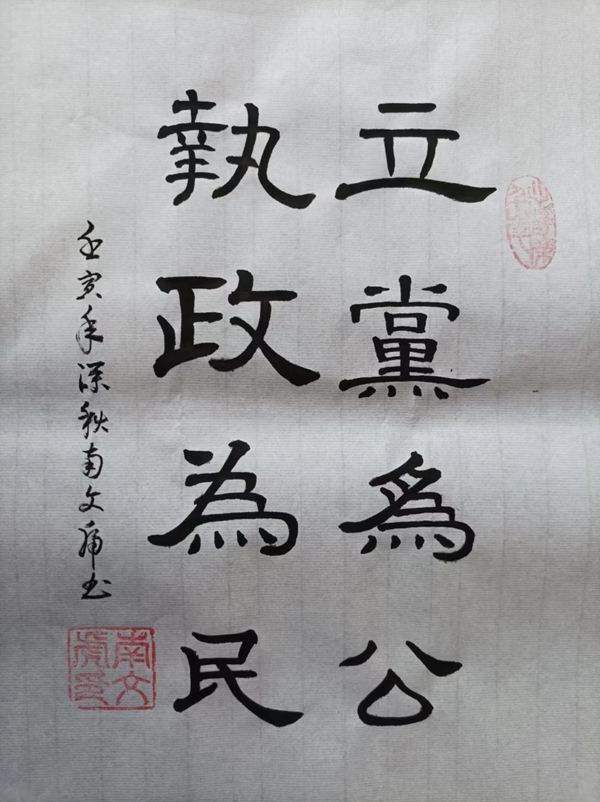 立黨爲公
執政為民
壬寅年深秋南文虎书
南文虎印